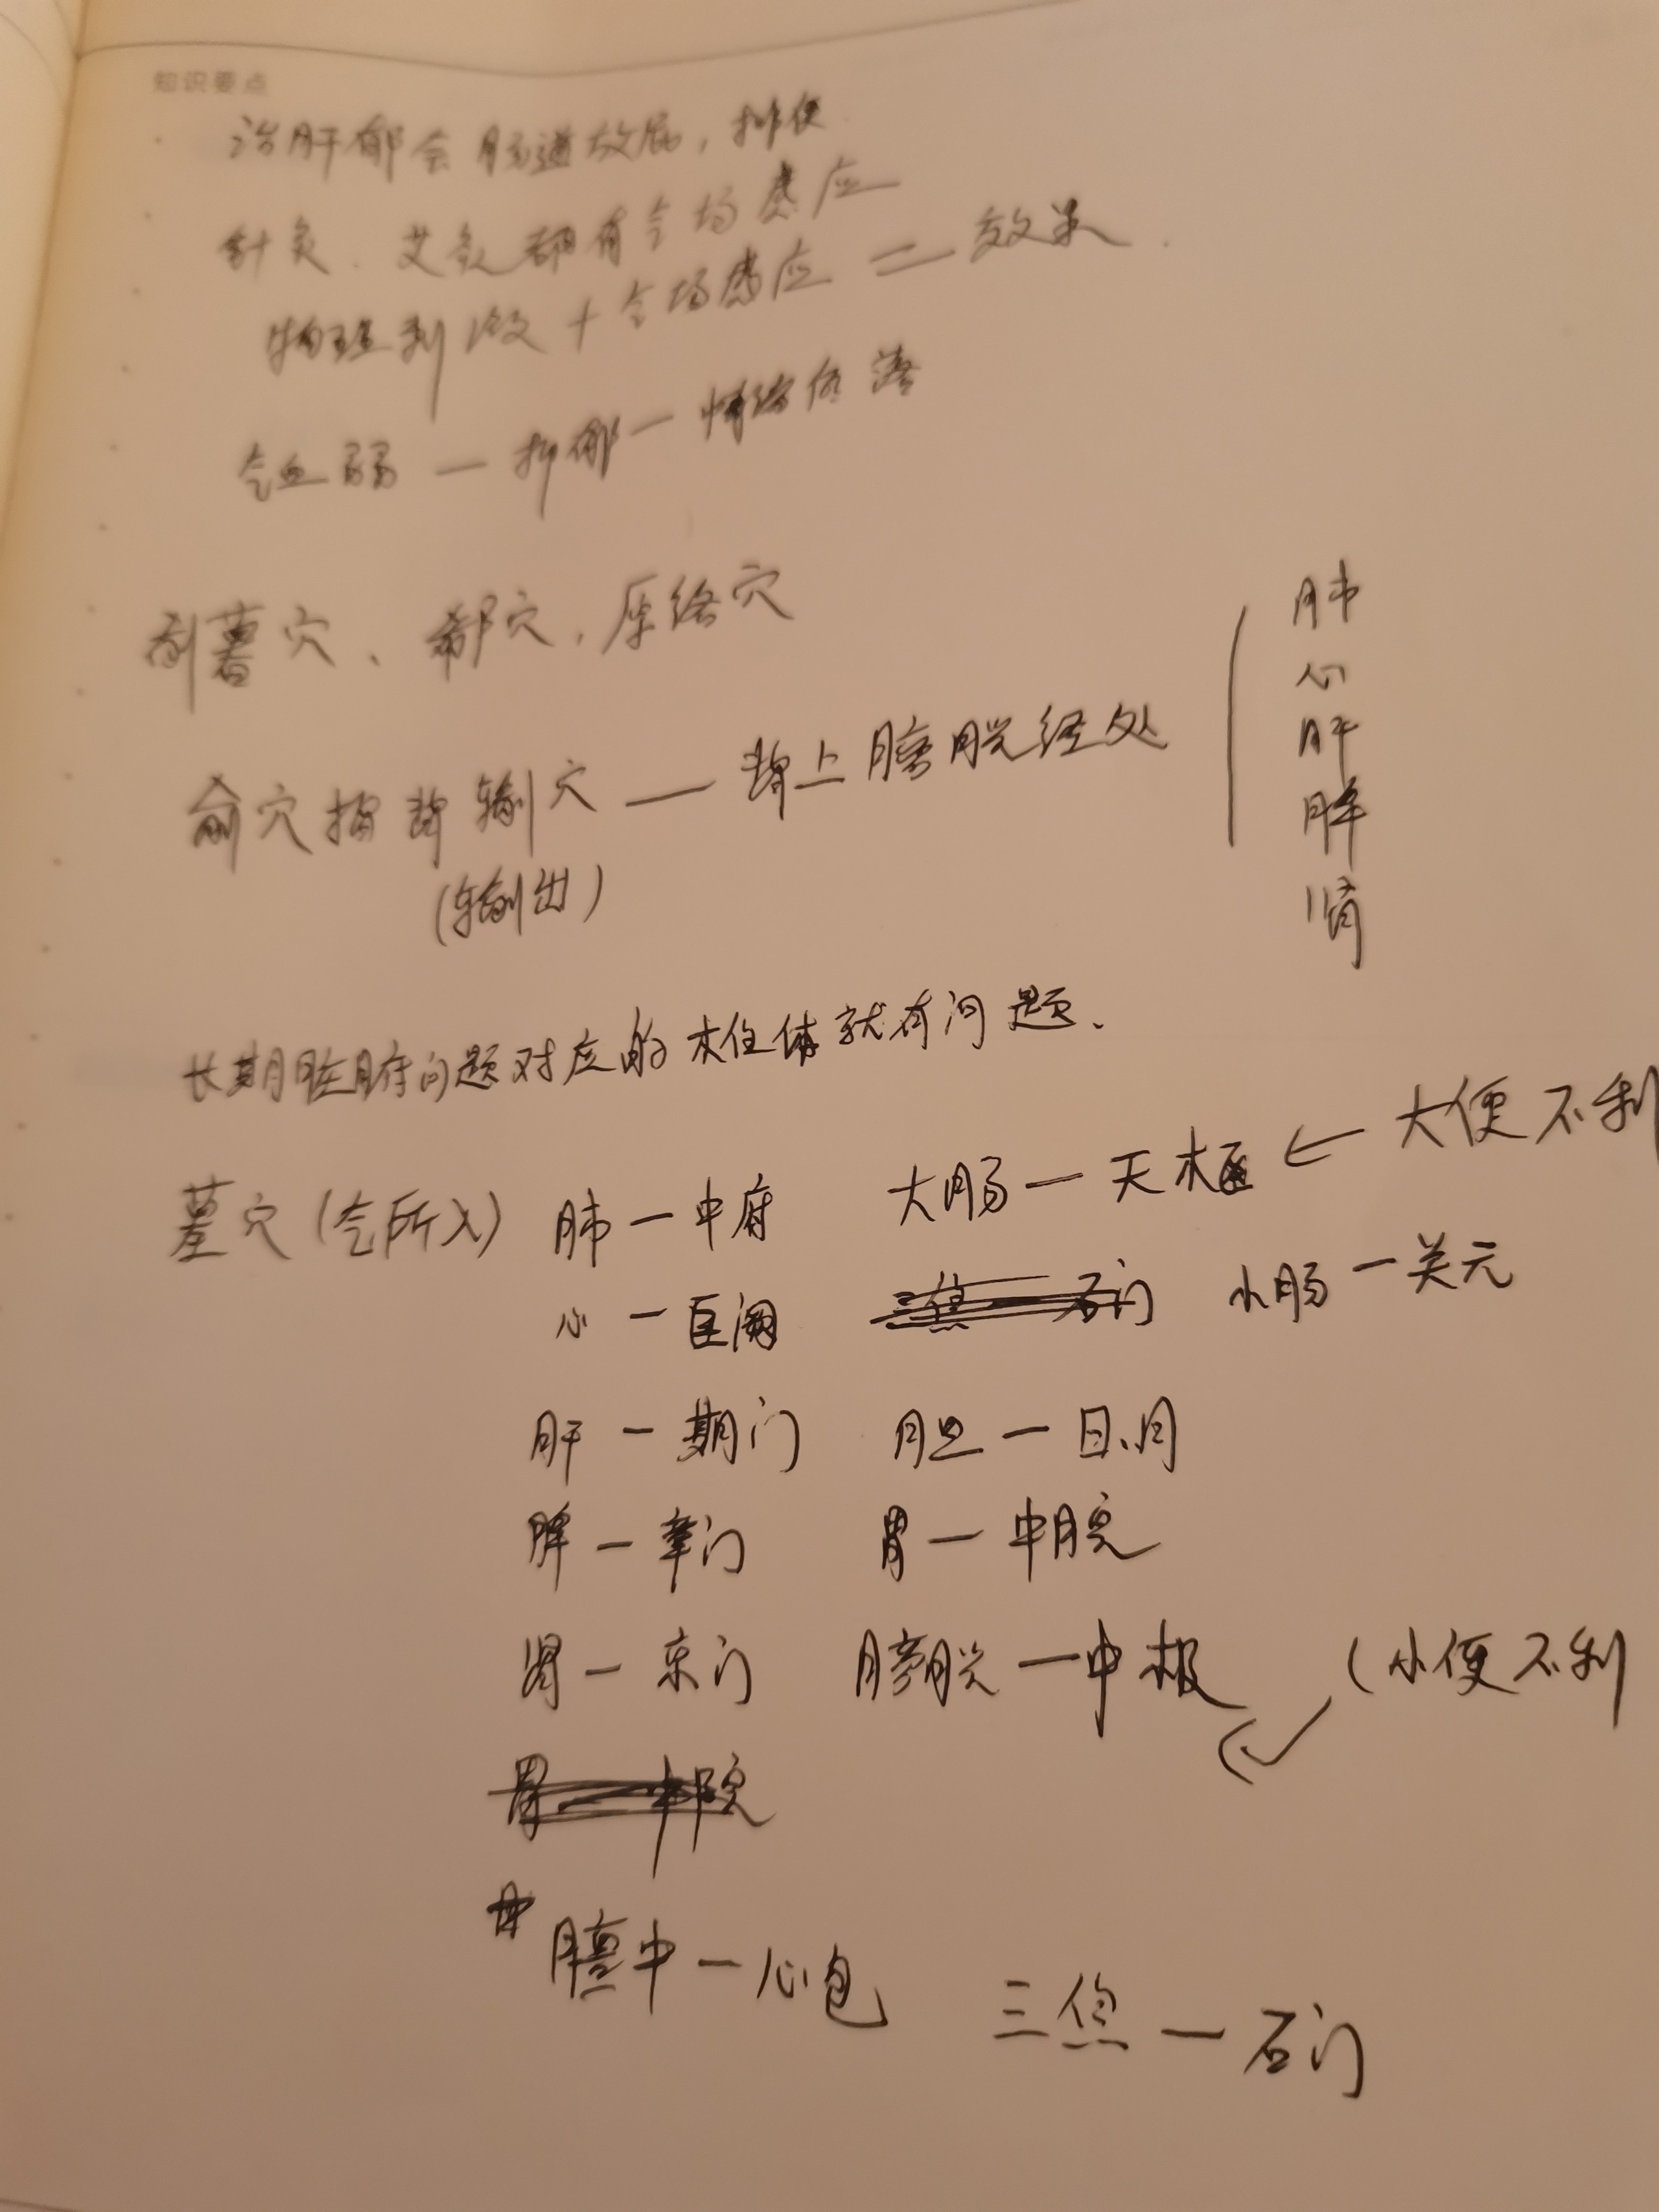 知识要点
治肝郁会肠道放屁，排便
针灸、艾灸都有气场感应
物理刺激+气场感应=效果.
气血弱一抑郁一情绪低落
俞募穴、郗穴，原络穴
俞穴指背输穴——背上膀胱经处
(输出)
肺
心
肝
脾
肾
长期脏腑问题对应的椎体就有问题、
募穴(气所入) 肺一中府 大肠一天枢 ← 大便不利
心 一巨阙 三焦 — 石门 小肠一关元
肝 一 期门 胆一日月
脾一章门 胃一中脘
肾一京门 膀胱一中极 (小便不利
胃 — 中脘
膻中一心包 三焦一石门